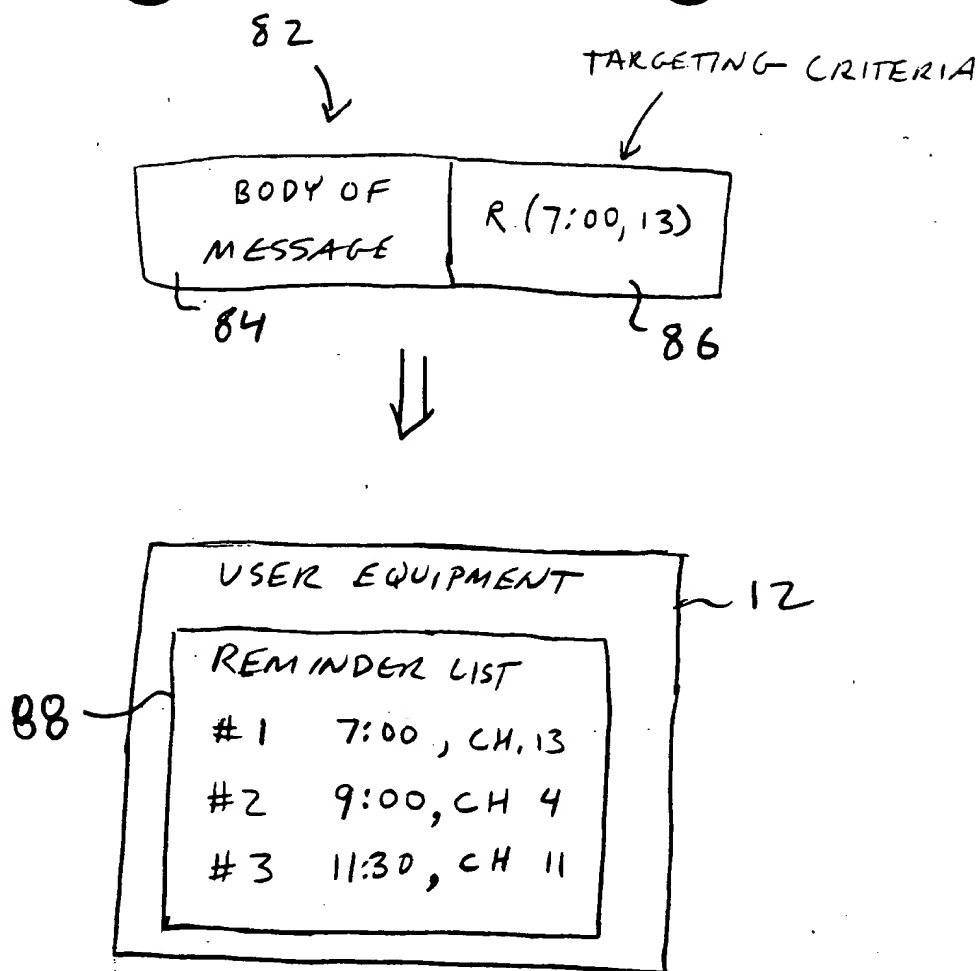 82
TARGETING CRITERIA
BODY OF
MESSAGE
R (7:00, 13)
84
86
USER EQUIPMENT
12
REMINDER LIST
88
#1 7:00, CH. 13
#2 9:00, CH 4
#3 11:30, CH 11